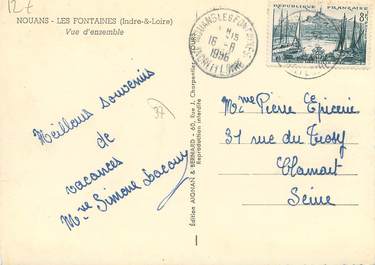 127
NOUANS - LES FONTAINES (Indre-&-Loire)
Vue d'ensemble
NOUANS LES FONTAINES
16 - 8
1956
INDRE ET LOIRE
REPUBLIQUE FRANÇAISE
8F
37
Meilleurs souvenirs
de
vacances
Mme Simone
Edition AIGNAN & BERNARD - 60, Rue J. Charpentier, Tours
Reproduction interdite
Mme Pierre Epicerie
31 rue du
Clamart
Seine